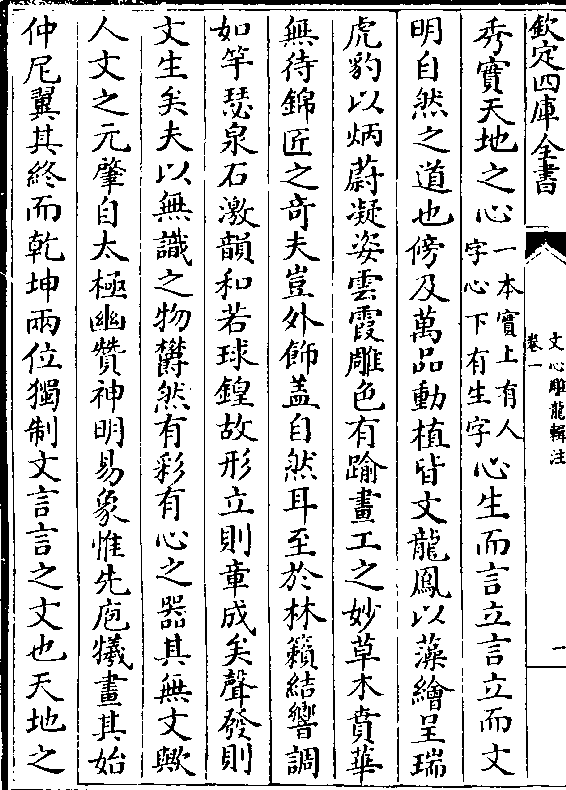 欽定四庫全書
文心雕龍輯注
卷一
一
秀實天地之心一本實上有人字心下有生字心生而言立言立而文
明自然之道也傍及萬品動植皆文龍鳳以藻繪呈瑞
虎豹以炳蔚凝姿雲霞雕色有踰畫工之妙草木賁華
無待錦匠之奇夫豈外飾蓋自然耳至於林籟結響調
如竽瑟泉石激韻和若球鍠故形立則章成矣聲發則
文生矣夫以無識之物欝然有彩有心之器其無文歟
人文之元肇自太極幽贊神明易象惟先庖犧畫其始
仲尼翼其終而乾坤兩位獨制文言言之文也天地之